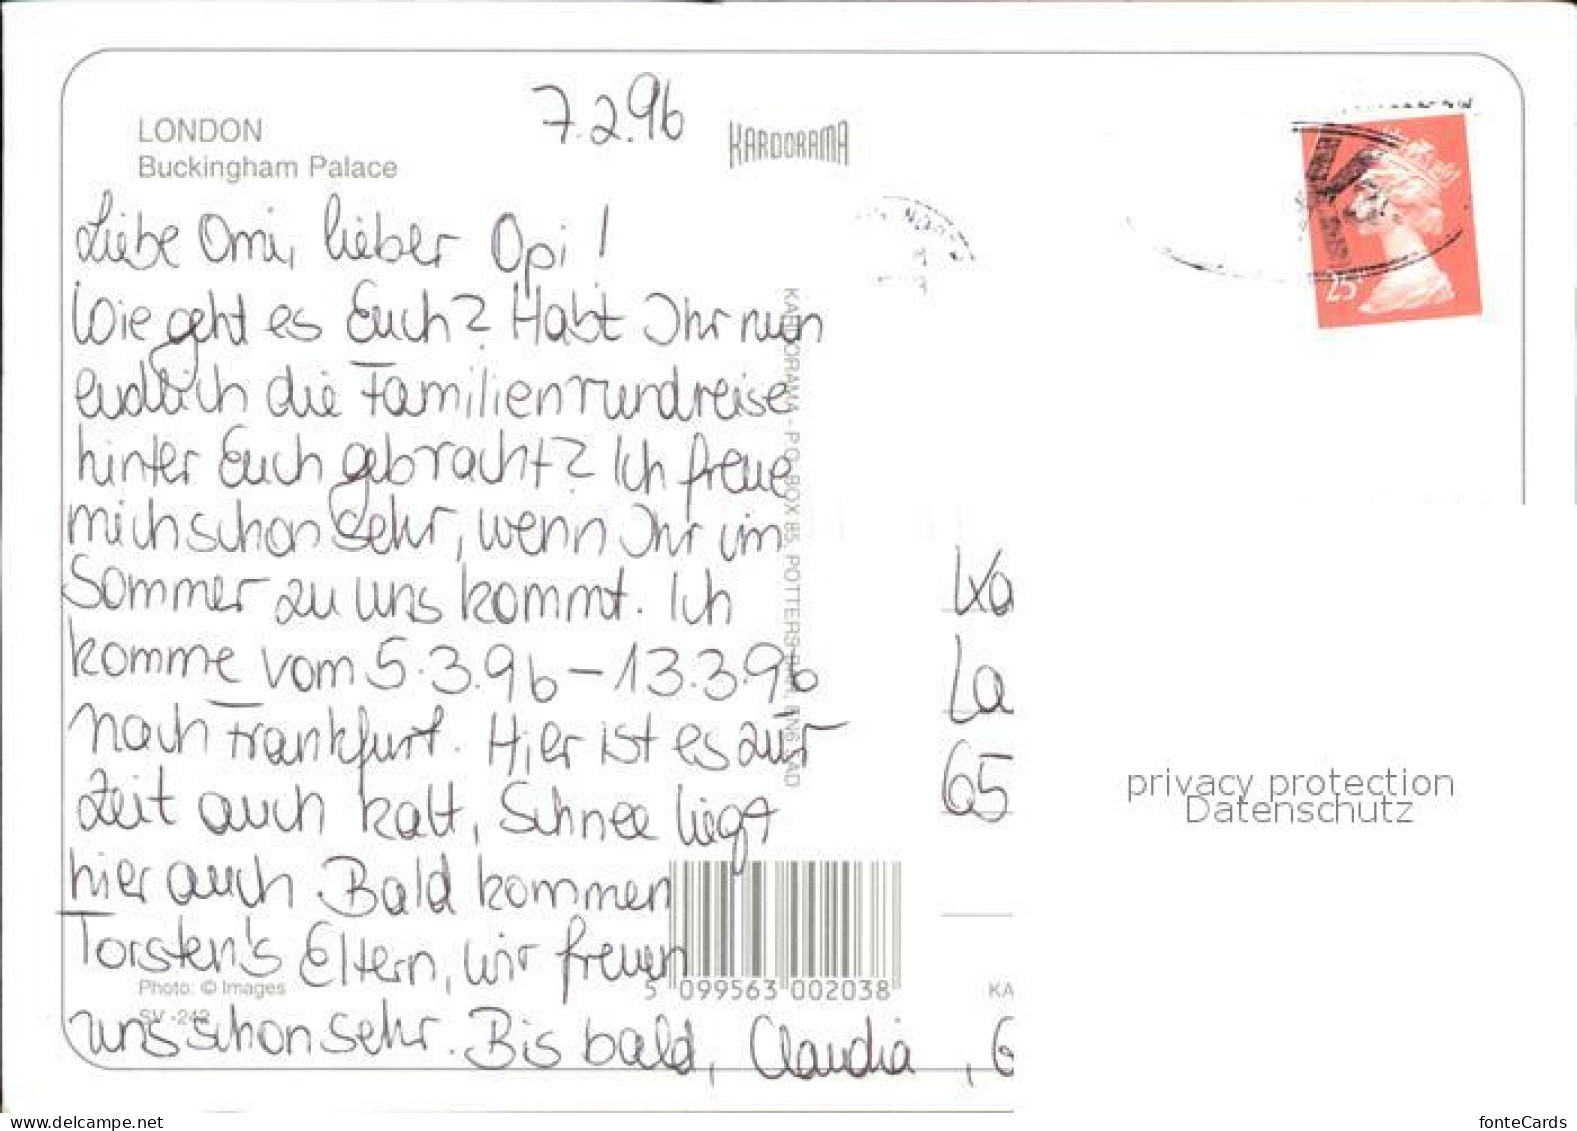 7.2.96
KARDORAMA
LONDON
Buckingham Palace
Liebe Omi, lieber Opi!
Wie geht es Euch? Habt Ihr nun
endlich die Familienrundreise
hinter Euch gebracht? Ich freue
mich schon sehr, wenn Ihr im
Sommer zu uns kommt. Ich
komme vom 5.3.96 – 13.3.96
nach Frankfurt. Hier ist es zur
Zeit auch kalt, Schnee liegt
hier auch. Bald kommen
Torsten's Eltern, wir freuen
uns schon sehr. Bis bald, Claudia
Photo: © Images
SV -242
5 099563 002038
KARDORAMA - P.O. BOX 85, POTTERS BAR, EN6
25
Ka
La
65
KA
privacy protection
Datenschutz
www.delcampe.net
fonteCards